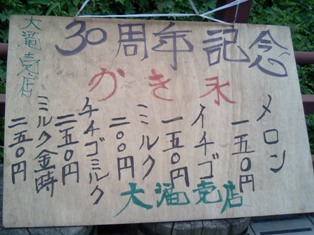 大滝売店
30周年記念
かき氷
メロン
一五〇円
イチゴ
一五〇円
ミルク
二〇〇円
イチゴミルク
二五〇円
ミルク金時
二五〇円
大滝売店